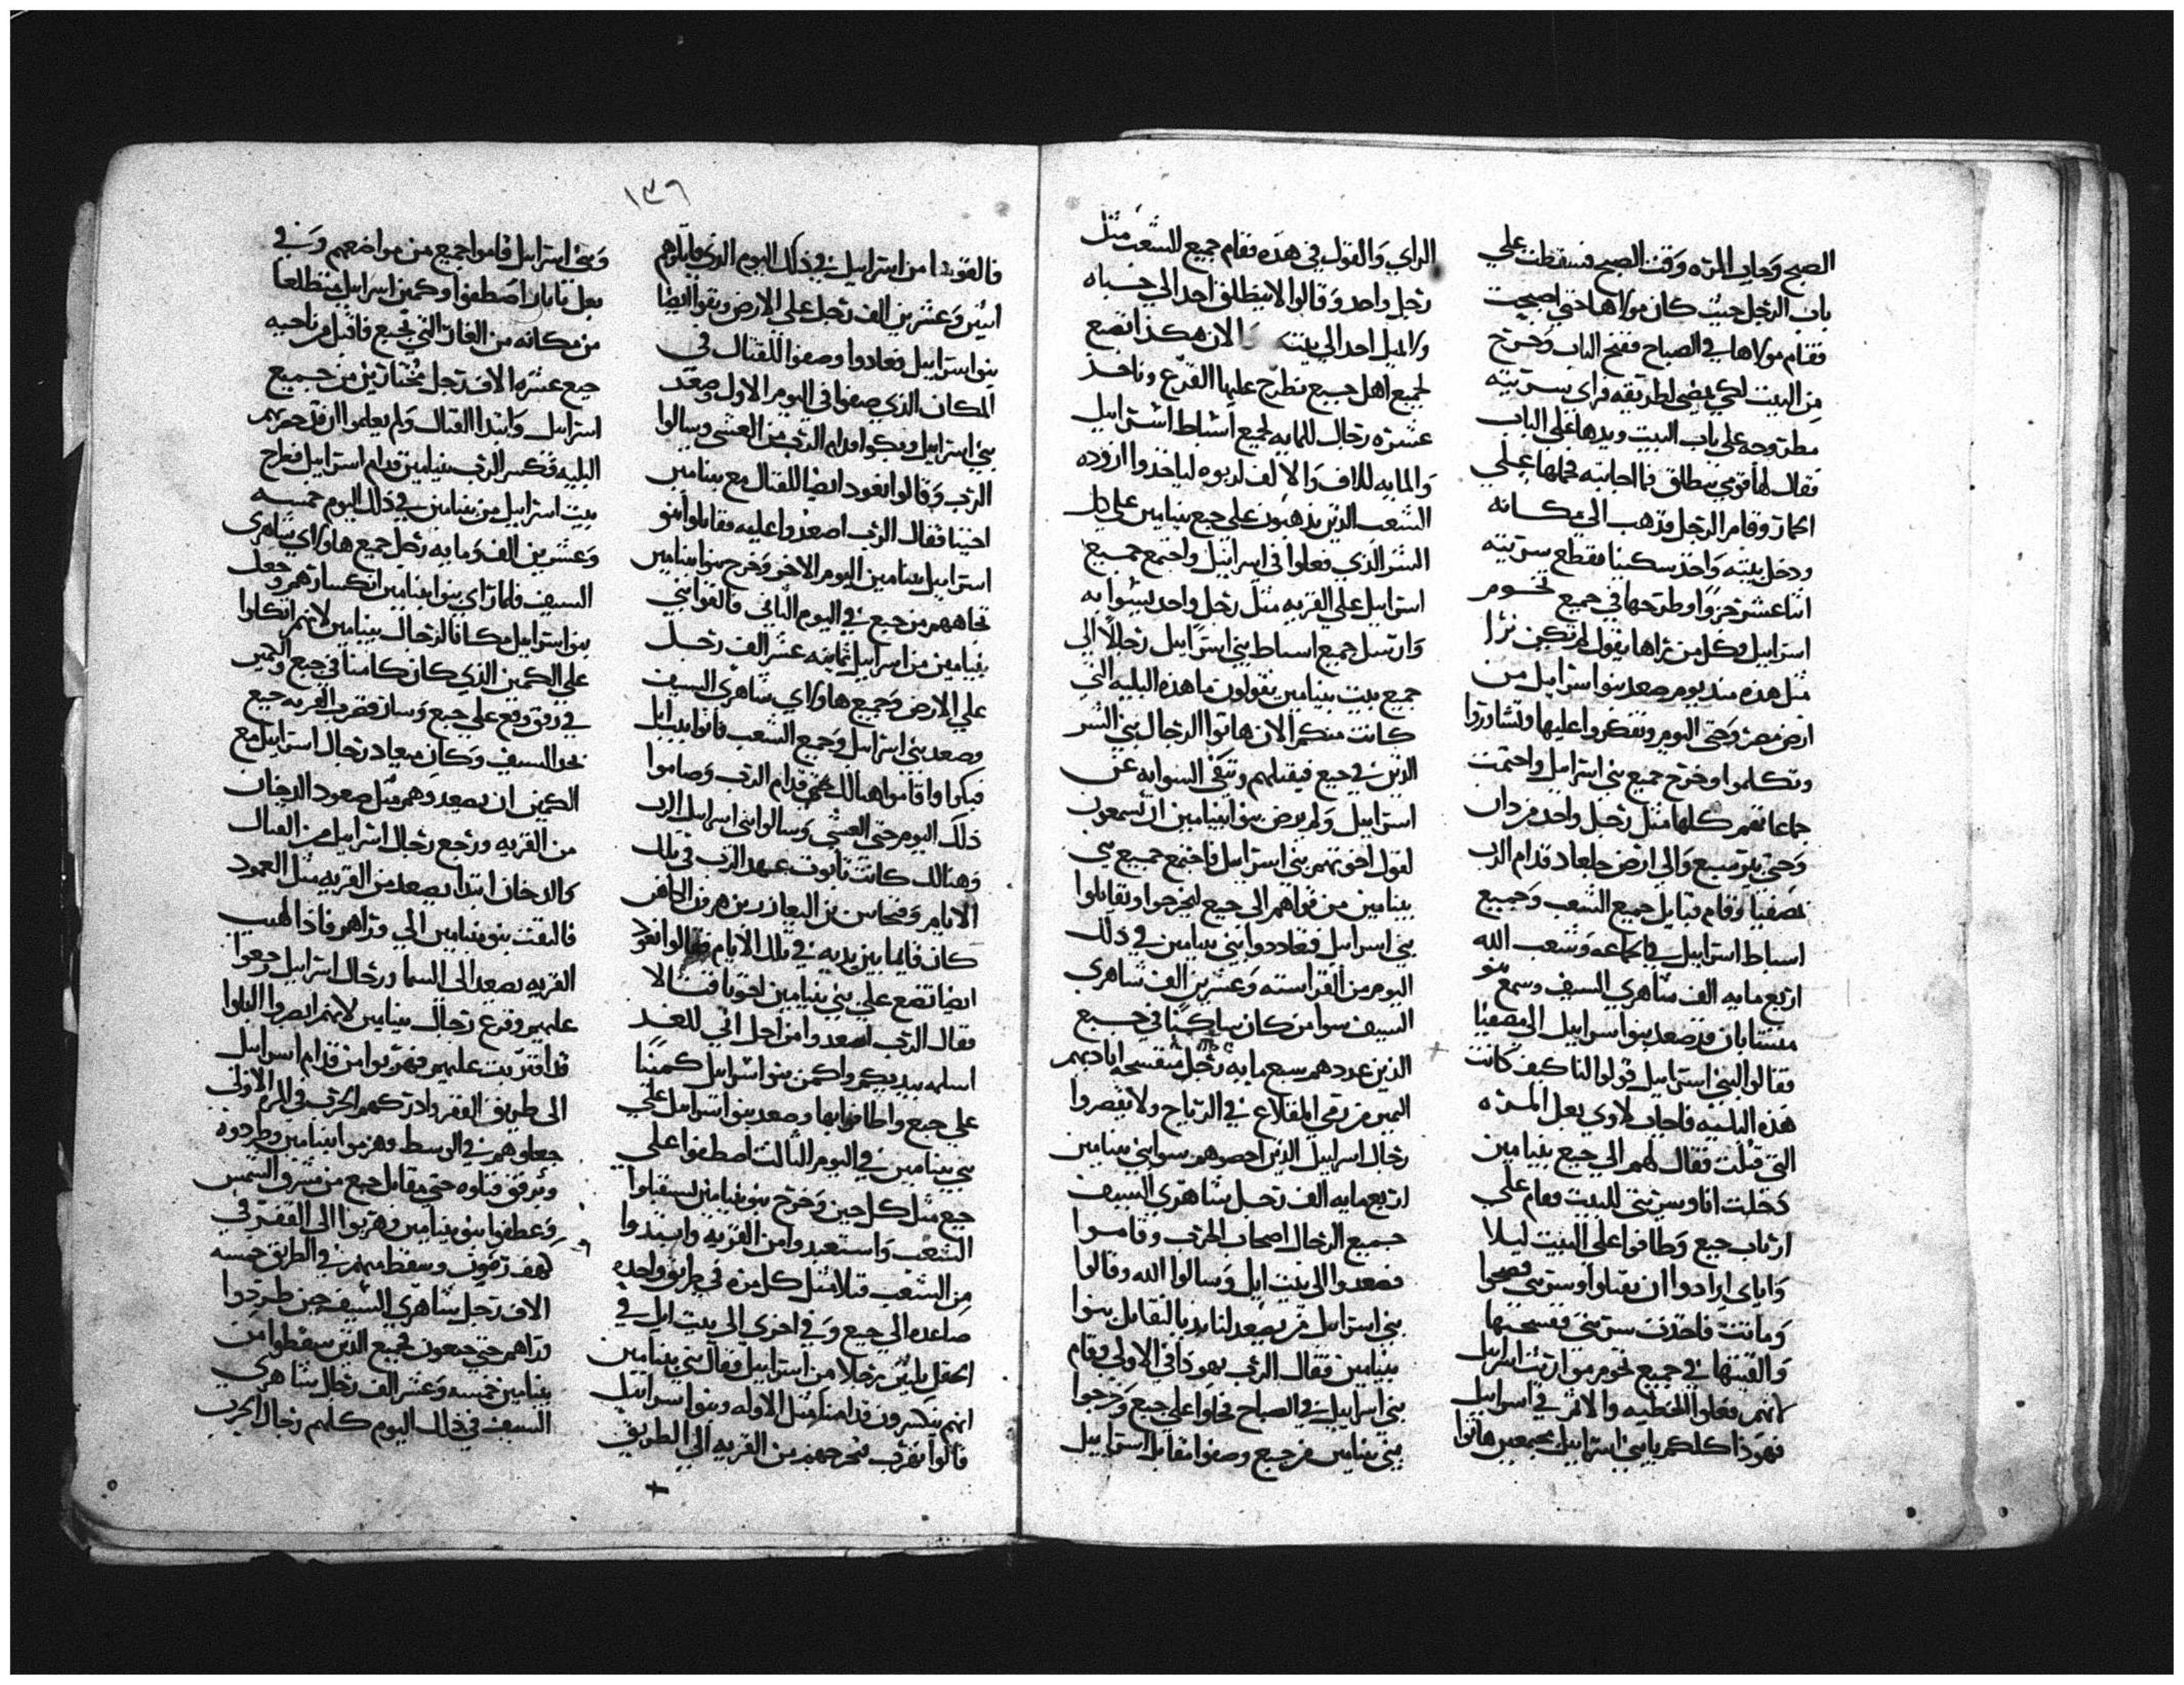 الصبح وجات المره وقت الصبح فسقطت علي
باب الرجل حيث كان مولاها حتي اصبحت
فقام مولاها في الصباح ففتح الباب وخرج
من البيت لكي يمضي لطريقه فراي سريته
مطروحه علي باب البيت ويدها علي الباب
فقال لها قومي ننطلق فما اجابته فحملها علي
الحمار وقام الرجل فذهب الي مكانه
ودخل بيته واخذ سكينا فقطع سريته
اثنا عشر جزوا وطرحها في جميع تخوم
اسراييل وكل من يراها يقول لم تكن نرا
مثل هذه منذ يوم صعد بنو اسراييل من
ارض مصر وحتي اليوم وتفكروا عليها وتشاوروا
وتكلموا وخرج جميع بني اسراييل واجتمعت
جماعاتهم كلها مثل رجل واحد من دان
وحتي بير سبع والي ارض جلعاد قدام الرب
بمصفيا وقام قبايل جميع الشعب وجميع
اسباط اسراييل في الجماعه وشعب الله
اربع مايه الف شاهري السيف وسمع بنو
بنيامين ان قد صعد بنو اسراييل الي مصفيا
فقالوا لبني اسراييل قولوا لنا كيف كانت
هذه البليه فاجاب لاوي بعل المره
التي قتلت فقال لهم الي جبع بنيامين
دخلت انا وسريتي للبيت فقام علي
ارباب جبع وطافوا علي البيت ليلا
واياي ارادوا ان يقتلوا وسريتي فضحوا
وماتت فاخذت سريتي ففسختها
والقيتها في جميع تخوم مواريث اسراييل
لانهم فعلوا الخطيه والاثم في اسراييل
فهوذا كلكم يا بني اسراييل مجتمعين هاتوا
الراي والقول في هذه فقام جميع الشعب مثل
رجل واحد وقالوا لا ينطلق احد الي خباه
ولا يميل احد الي بيته والان هكذا نصنع
لجميع اهل جبع نطرح عليها القرع وناخذ
عشره رجال للمايه لجميع اسباط اسراييل
والمايه للالاف والالف لربوه لياخذوا ازوده
الشعب الذين يذهبون علي جبع بنيامين علي كل
الشر الذي فعلوا في اسراييل واجتمع جميع
اسراييل علي القريه مثل رجل واحد
وارسل جميع اسباط بني اسراييل رجالا الي
جميع بيت بنيامين يقولون ما هذه البليه التي
كانت منكم الان هاتوا الرجال بني الشر
الذين في جبع فيقتلهم وتنقي السوايه عن
اسراييل ولم يرض بنو بنيامين ان يسمعون
لقول اخوتهم بني اسراييل فاجتمع جميع بني
بنيامين من قراهم الي جبع ليخرجوا ويقاتلوا
بني اسراييل فتعاددوا بني بنيامين في ذلك
اليوم من القرا سته وعشرين الف شاهري
السيف سوا من كان ساكنا في جبع
الذين عددهم سبع مايه رجل اياديهم
اليمين من رمي المقلاع في الرياح ولا يقصروا
رجال اسراييل الذين احصوهم سوا بني بنيامين
اربع مايه الف رجل شاهري السيف
جميع الرجال اصحاب الحرب وقاموا
فصعدوا الي بيت ايل وسالوا الله وقالوا
بني اسراييل من يصعد لنا بديا لنقاتل بنوا
بنيامين فقال الرب يهوذا في الاولي وقام
بني اسراييل في الصباح فحلوا علي جبع وخرجوا
بني بنيامين من جبع وصفوا مقابل اسراييل
١٣٦
فالقوا من اسراييل في ذلك اليوم الذي قاتلوهم
اثنين وعشرين الف رجل علي الارض ايضا
بنو اسراييل فعادوا وصفوا للقتال في
المكان الذي صفوا في اليوم الاول وصعد
بني اسراييل وبكوا قدام الرب من العشي وسالوا
الرب وقالوا نعود ايضا للقتال مع بنيامين
اخينا فقال الرب اصعدوا عليه فقاتلوا بنو
اسراييل بنيامين اليوم الاخر وخرج بنو بنيامين
تجاههم من جبع في اليوم الثاني فالقوا بني
بنيامين من اسراييل ثمانيه عشر الف رجل
علي الارض وجميع هاولاي شاهري السيف
وصعد بني اسراييل وجميع الشعب فاتوا بيت ايل
فبكوا واقاموا هنالك قدام الرب وصاموا
ذلك اليوم حتي العشي وسالوا بني اسراييل الرب
وهنالك كانت تابوت عهد الرب في تلك
الايام وفنحاس بن اليعازر بن هرون الكاهن
كان قايما بين يديه في تلك الايام فقالوا نعود
ايضا نصنع علي بني بنيامين اخوتنا قتالا
فقال الرب اصعدوا من اجل اني للغد
اسلمه بيديكم واكمن بنو اسراييل كمينا
علي جبع واطافوا بها وصعد بنو اسراييل علي
بني بنيامين في اليوم الثالث اصطفوا علي
جبع مثل كل حين وخرج بنو بنيامين يستقبلوا
الشعب واستبعدوا من القريه وابتدوا
من الشعب قتلا مثل كل مره في طريق واحده
صاعده الي جبع وفي اخري الي بيت ايل في
الحقل ثلثين رجلا من اسراييل وقال بني بنيامين
انهم ينكسرون قدامنا مثل الاوله وبنو اسراييل
قالوا نهرب فنخرجهم من القريه الي الطريق
وبني اسراييل قاموا جميع من مواضعهم وفي
بعل تامار اصطفوا وكمين اسراييل متطلعا
من مكانه من الغار التي لجبع فاقبل من ناحيه
جبع عشره الاف رجل مختارين من جميع
اسراييل وابتدا القتال ولم يعلموا ان قد حضرتهم
البليه فكسر الرب بنيامين قدام اسراييل فطرح
بيت اسراييل من بنيامين في ذلك اليوم خمسه
وعشرين الف ومايه رجل جميع هاولاي شاهري
السيف فلما راي بنو بنيامين انكسارهم وجعل
بنو اسراييل مكانا لرجال بنيامين لانهم اتكلوا
علي الكمين الذي كان كامنا في جبع والكمين
في وقع علي جبع وسار فضرب القريه جميع
بحد السيف وكان ميعاد رجال اسراييل مع
الكمين ان يصعدوهم مثل صعود الدخان
من القريه ورجع رجال اسراييل من القتال
والدخان ابتدا يصعد من القريه مثل العمود
فالتفت بنو بنيامين الي وراهم فاذا لهيب
القريه يصعد الي السما ورجال اسراييل رجعوا
عليهم وفزع رجال بنيامين لانهم ابصروا البلوا
قد اقتربت عليهم فهربوا من قدام اسراييل
الي طريق القفر وادركهم الحرب في المره الاولي
جعلوهم في الوسط وهزموا بنيامين وطردوه
قتلوه حتي مقابل جبع من مشرق الشمس
وعطفوا بنو بنيامين وهربوا الي القفر في
كهف رمون وسقط منهم في الطريق خمسه
الاف رجل شاهري السيف حين طردوا
وراهم حتي جبعون فجميع الذين سقطوا من
بنيامين خمسه وعشر الف رجال شاهري
السيف في ذلك اليوم كلهم رجال الحرب